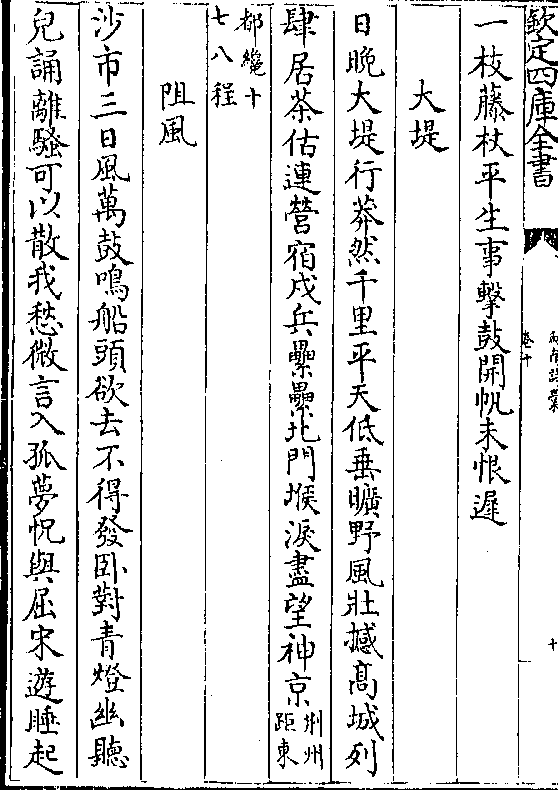 欽定四庫全書
卷十
十
一枝藤杖平生事擊鼓開帆未恨遲
大堤
日晚大堤行莽然千里平天低垂曠野風壯撼髙城列
肆居茶估連營宿戍兵纍纍北門堠淚盡望神京荆州距東
都纔十七八程
阻風
沙市三日風萬鼓鳴船頭欲去不得發卧對青燈幽聽
兒誦離騷可以散我愁微言入孤夢怳與屈宋遊睡起